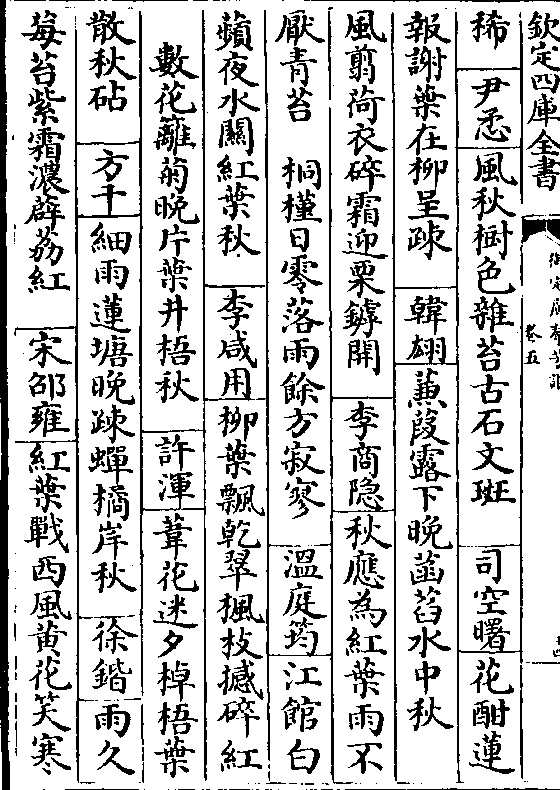 欽定四庫全書
卷五
稀 尹悉 風秋樹色雜苔古石文斑 司空曙 花酣蓮
報謝葉在柳呈踈 韓翃 蒹葭露下晚菡萏水中秋
風翦荷衣碎霜迎栗罅開 李商隐 秋應為紅葉雨不
厭青苔 桐槿日零落雨餘方寂寥 溫庭筠 江館白
蘋夜水關紅葉秋 李咸用 柳葉飄乾翠楓枝撼碎紅
數花籬菊晚片葉井梧秋 許渾 葦花迷夕棹梧葉
散秋砧 方干 細雨蓮塘晚踈蟬橘岸秋 徐鍇 雨久
莓苔紫霜濃薜荔紅 宋邵雍 紅葉戰西風黄花笑寒